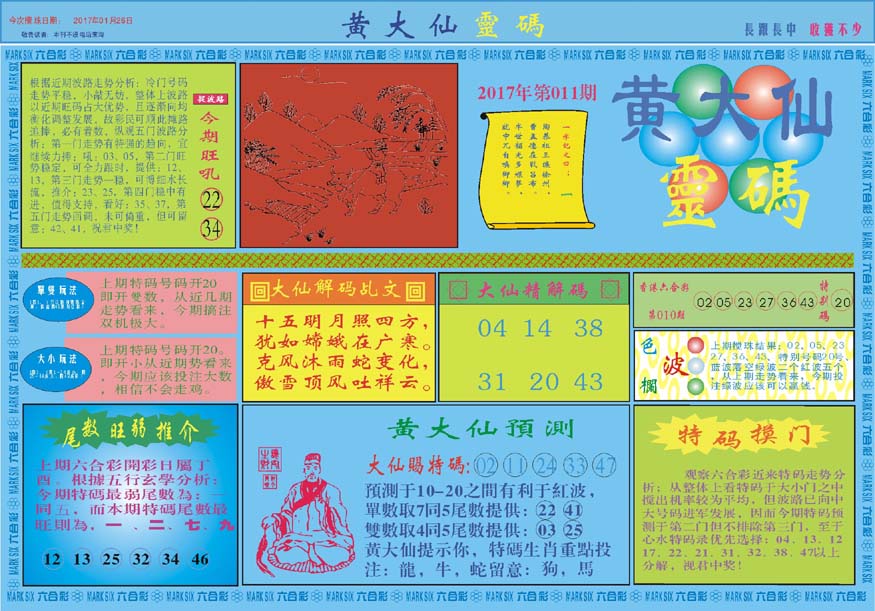 今次攪珠日期： 2017年01月26日
黄大仙靈碼
長跟長中 收獲不少
MARK SIX 六合彩
根据近期波路走势分析：冷门号码
走势平稳，小献无妨。整体上波路
以近期旺码占大优势，且逐渐向均
衡化调整发展，故彩民可顺此摊路
追捧，必有着数。纵观五门波路分
析：第一门走势有特强的趋向，宜
继续力捧；吼：03、05，第二门旺
势稳定，可全力跟时，提供：12、
13，第三门走势一稳，可博细水长
流，推介：23、25，第四门稳中有
进，值得支持，看好：35、37，第
五门走势西调，未可偏重，但可留
意：42、41，祝君中奖！
捉波路
今期旺吼
22
34
2017年第011期
一字记之曰：
黄大仙
靈碼
單雙玩法
上期特码号码开20
即开雙数，从近几期
走势看来，今期搞注
双机极大。
大小玩法
上期特码号码开20。
即开小从近期势看来
，今期应该投注大数
，相信不会走鸡。
大仙解码乩文
十五明月照四方，
犹如嫦娥在广寒。
克风沐雨蛇变化，
傲雪顶风吐祥云。
大仙精解碼
04 14 38
31 20 43
香港六合彩
第010期
02 05 23 27 36 43
特别碼
20
色波欄
上期搅珠结果：02、05、23
27、36、43，特别号码20号，
蓝波落空绿波二个红波五个
，从上期走势看来，今期投
注绿波应该可以赢钱。
尾数旺弱推介
上期六合彩開彩日屬丁
酉。根據五行玄學分析：
今期特碼最弱尾數為：一
同五，而本期特碼尾數最
旺則為，一、二、七、九
12 13 25 32 34 46
黄大仙預測
大仙賜特碼：02 11 24 33 47
預測于10-20之間有利于紅波，
單數取7同5尾數提供：22 41
雙數取4同5尾數提供：03 25
黄大仙提示你，特碼生肖重點投
注：龍，牛，蛇留意：狗，馬
特码摸门
观察六合彩近来特码走势分
析：从整体上看特码于大小门之中
搅出机率较为平均，但波路已向中
大号码进军发展，因而今期特码预
测于第二门但不排除第三门，至于
心水特码录优先选择：04、13、12
17、22、21、31、32、38、47以上
分解，祝君中奖！